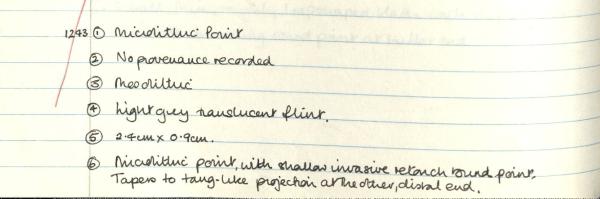 1243 ① Microlithic Point
② No provenance recorded
③ Mesolithic
④ Light grey translucent flint.
⑤ 2.4cm x 0.9cm.
⑥ Microlithic point, with shallow invasive retouch round point.
Tapers to tang-like projection at the other, distal end.